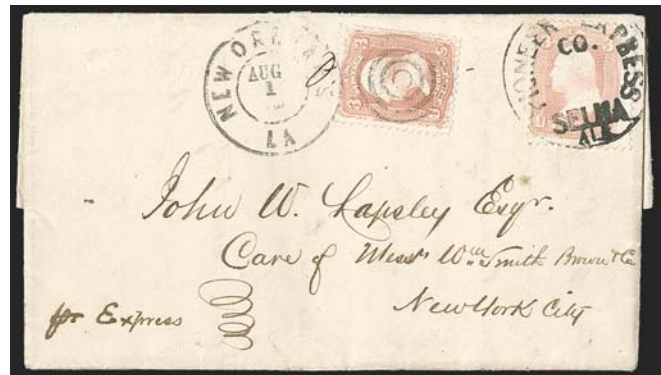 NEW ORLEANS
AUG
1
LA
3 3
PIONEER EXPRESS
CO.
SELMA
ALA
John W. Lapsley Esqr.
Care of Messrs Wm Smith Brown & Co
New York City
pr Express